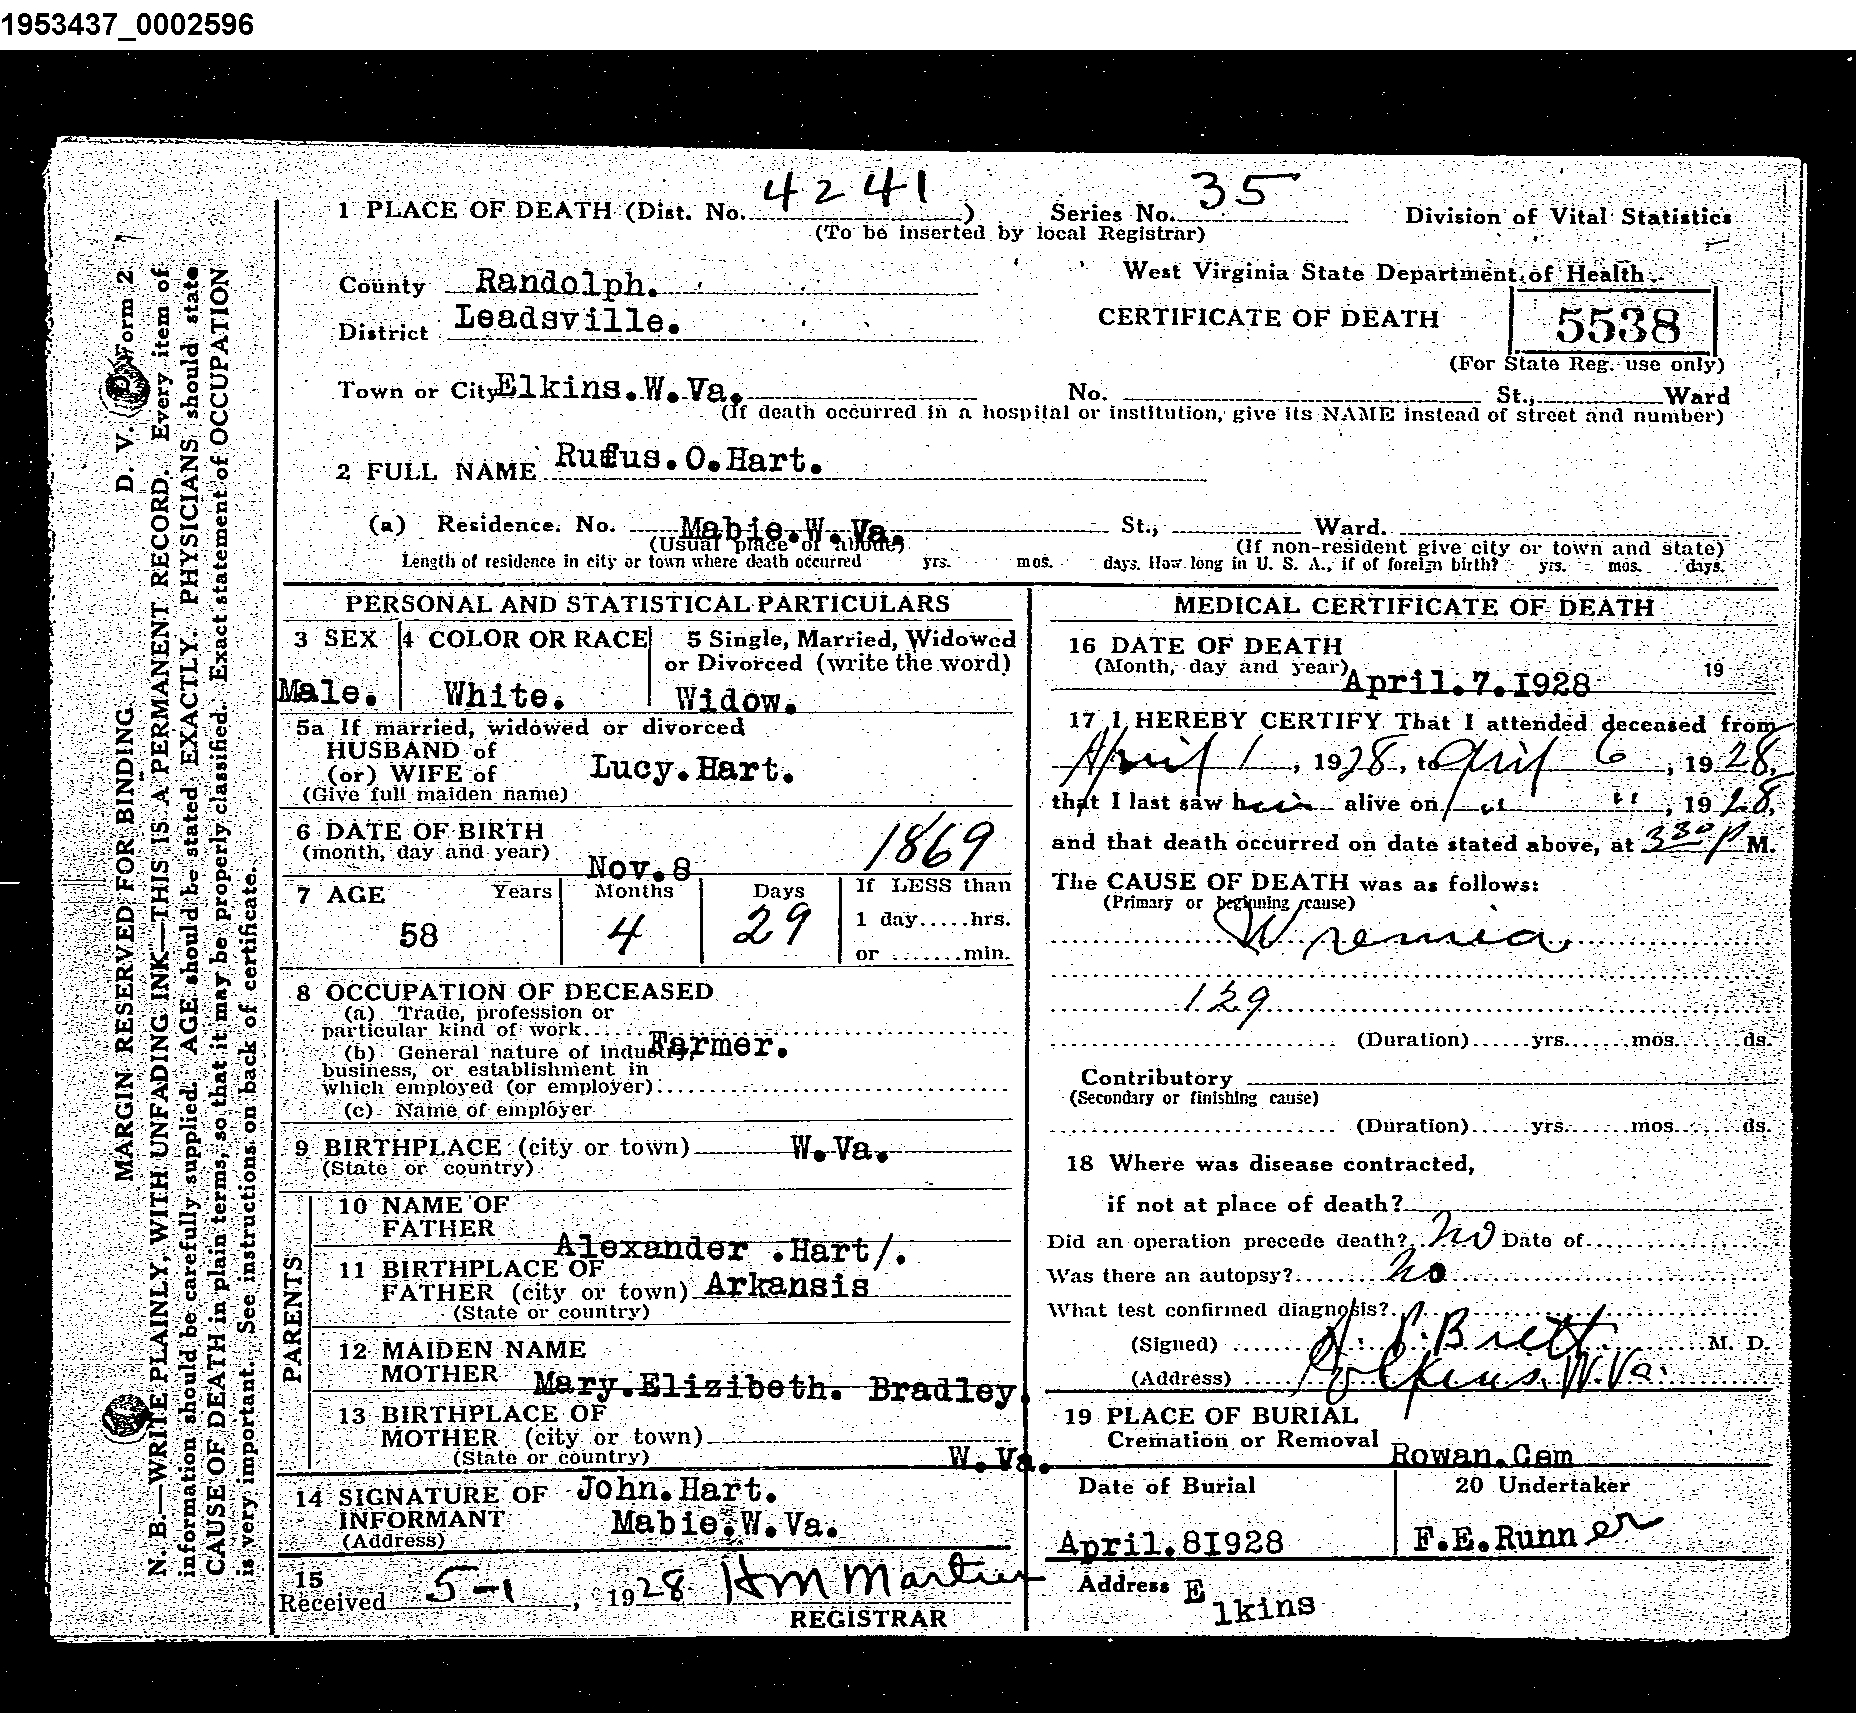 1953437_0002596
1 PLACE OF DEATH (Dist. No. 4241) Series No. 35 Division of Vital Statistics
(To be inserted by local Registrar)
County Randolph. West Virginia State Department of Health
District Leadsville. CERTIFICATE OF DEATH 5538
(For State Reg. use only)
Town or City Elkins.W.Va. No. St., Ward
(If death occurred in a hospital or institution, give its NAME instead of street and number)
2 FULL NAME Rufus.O.Hart.
(a) Residence. No. Mabie.W.Va. St., Ward.
(Usual place of abode) (If non-resident give city or town and state)
Length of residence in city or town where death occurred yrs. mos. days. How long in U. S. A., if of foreign birth? yrs. mos. days.
PERSONAL AND STATISTICAL PARTICULARS
3 SEX 4 COLOR OR RACE 5 Single, Married, Widowed
or Divorced (write the word)
Male. White. Widow.
5a If married, widowed or divorced
HUSBAND of
(or) WIFE of Lucy.Hart.
(Give full maiden name)
6 DATE OF BIRTH
(month, day and year) Nov.8 1869
7 AGE Years Months Days If LESS than
58 4 29 1 day.....hrs.
or .......min.
8 OCCUPATION OF DECEASED
(a) Trade, profession or
particular kind of work
(b) General nature of industry, Farmer.
business, or establishment in
which employed (or employer)
(c) Name of employer
9 BIRTHPLACE (city or town) W.Va.
(State or country)
PARENTS
10 NAME OF
FATHER Alexander .Hart/.
11 BIRTHPLACE OF
FATHER (city or town) Arkansis
(State or country)
12 MAIDEN NAME
MOTHER Mary.Elizibeth. Bradley.
13 BIRTHPLACE OF
MOTHER (city or town)
(State or country) W.Va.
14 SIGNATURE OF John.Hart.
INFORMANT Mabie.W.Va.
(Address)
15
Received 5-1, 1928 HM Martin
REGISTRAR
MEDICAL CERTIFICATE OF DEATH
16 DATE OF DEATH
(Month, day and year) April.7.I928 19
17 I HEREBY CERTIFY That I attended deceased from
April 1, 1928, to April 6, 1928,
that I last saw him alive on " ", 1928,
and that death occurred on date stated above, at 330 P M.
The CAUSE OF DEATH was as follows:
(Primary or beginning cause)
Uremia
129
(Duration)......yrs.......mos.......ds.
Contributory
(Secondary or finishing cause)
(Duration)......yrs.......mos.......ds.
18 Where was disease contracted,
if not at place of death?
Did an operation precede death? No Date of
Was there an autopsy? No
What test confirmed diagnosis?
(Signed) Brett M. D.
(Address) Elkins.W.Va.
19 PLACE OF BURIAL
Cremation or Removal Rowan.Cem
Date of Burial 20 Undertaker
April.8I928 F.E.Runner
Address Elkins
D. V. Form 2
MARGIN RESERVED FOR BINDING.
N. B.—WRITE PLAINLY, WITH UNFADING INK—THIS IS A PERMANENT RECORD. Every item of
information should be carefully supplied. AGE should be stated EXACTLY. PHYSICIANS should state
CAUSE OF DEATH in plain terms, so that it may be properly classified. Exact statement of OCCUPATION
is very important. See instructions on back of certificate.